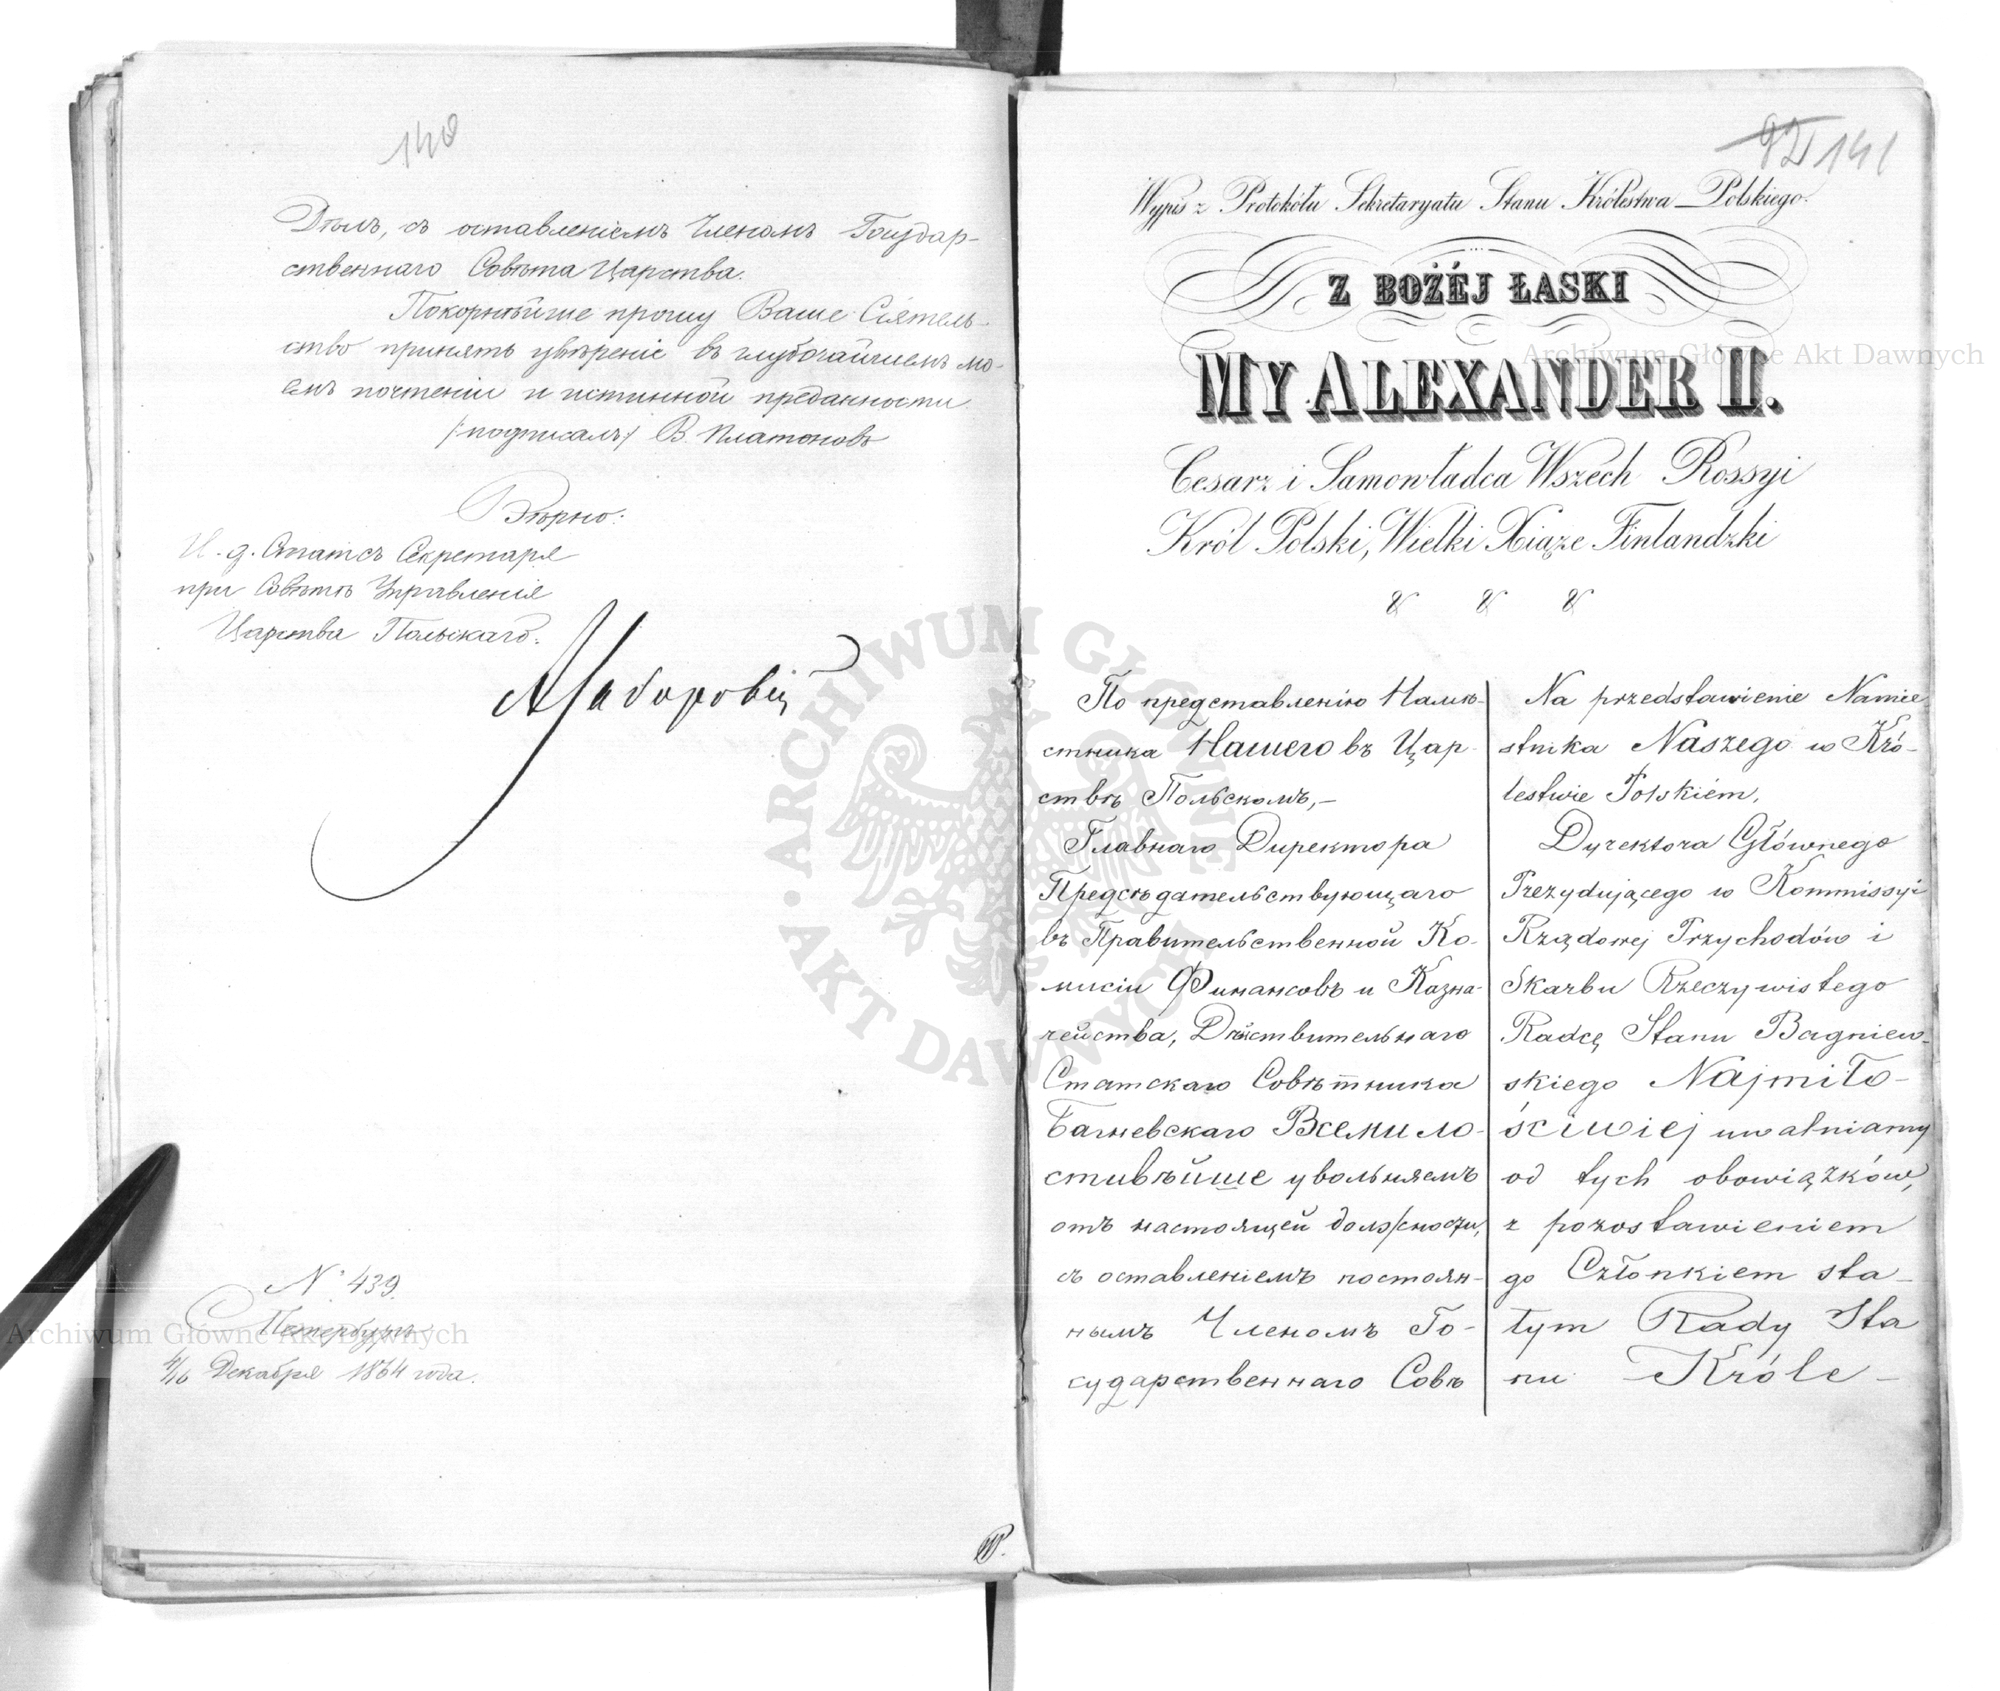 140
Дѣлъ, съ оставленіемъ Членомъ Государ-
ственнаго Совѣта Царства.
Покорнѣйше прошу Ваше Сіятель-
ство принять увѣреніе въ глубочайшемъ мо-
емъ почтеніи и истинной преданности
/:подписалъ:/ В. Платоновъ
Вѣрно:
И. д. Статсъ Секретаря
при Совѣтѣ Управленія
Царства Польскаго:
N. 439.
С Петербургъ
4/16 Декабря 1864 года.
92 141
Wypis z Protokółu Sekretaryatu Stanu Królestwa Polskiego.
Z BOŻÉJ ŁASKI
MY ALEXANDER II.
Cesarz i Samowładca Wszech Rossyi
Król Polski, Wielki Xiąże Finlandzki
& & &
По представленію Намѣ-
стника Нашего въ Цар-
ствѣ Польскомъ,—
Главнаго Директора
Предсѣдательствующаго
въ Правительственной Ко-
мисіи Финансовъ и Казна-
чейства, Дѣйствительнаго
Статскаго Совѣтника
Багневскаго Всемило-
стивѣйше увольняемъ
отъ настоящей должности,
съ оставленіемъ постоян-
нымъ Членомъ Го-
сударственнаго Совѣ
Na przedstawienie Namie
stnika Naszego w Kró-
lestwie Polskiém,
Dyrektora Głównego
Prezydującego w Kommissyi
Rządowej Przychodów i
Skarbu Rzeczywistego
Radcę Stanu Bagniew-
skiego Najmiło-
ściwiej uwalniamy
od tych obowiązków,
z pozostawieniem
go Członkiem sta-
łym Rady Sta
nu Króle-
Archiwum Główne Akt Dawnych
Archiwum Główne Akt Dawnych
ARCHIWUM GŁÓWNE · AKT DAWNYCH ·